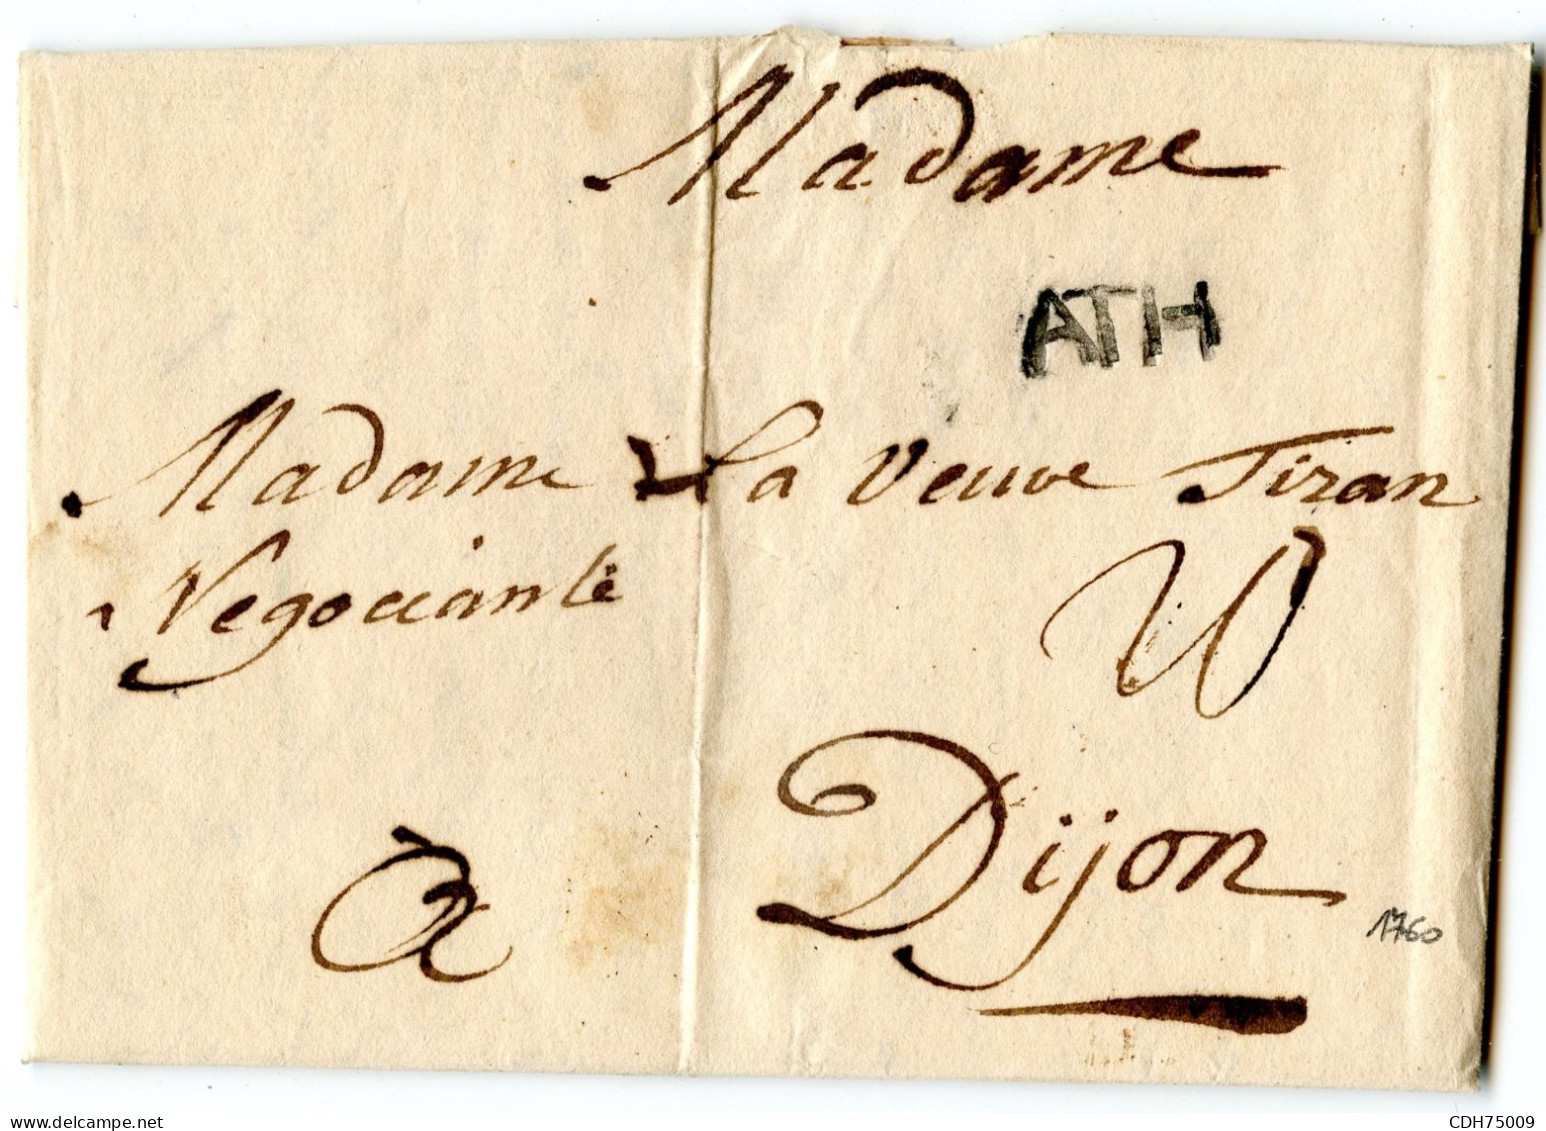 Madame
ATH
Madame La Veuve Tiran
Negociante
W
A Dijon
1760
www.delcampe.net
CDH75009